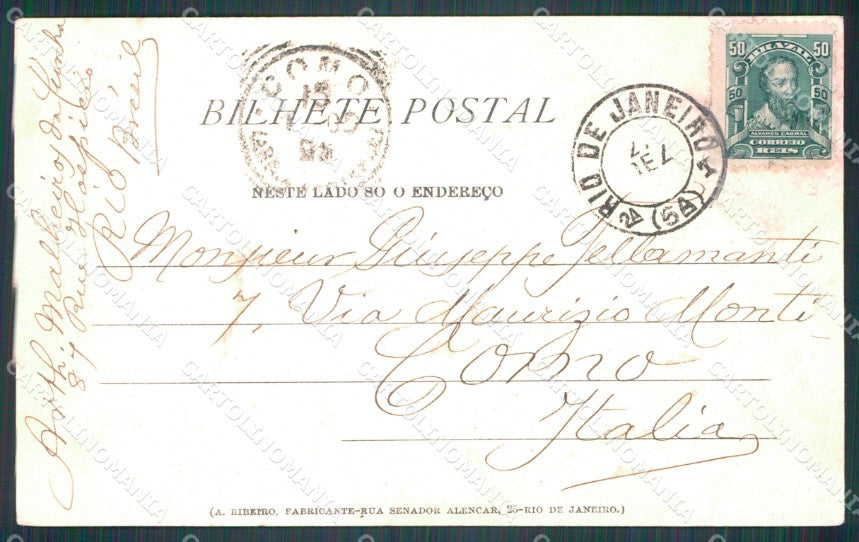 BILHETE POSTAL
NESTE LADO SO O ENDEREÇO
COMO
RIO DE JANEIRO
(5A)
50 BRAZIL 50
50 50
ALVARES CABRAL
CORREIO
REIS
Monsieur Giuseppe Jellamanti
7, Via Maurizio Monti
Como
Italia
Arth. Malheiros da Cunha
84 Rua Hospicio
RIO
Brésil
(A. RIBEIRO, FABRICANTE-RUA SENADOR ALENCAR, 25-RIO DE JANEIRO.)
CARTOLINOMANIA